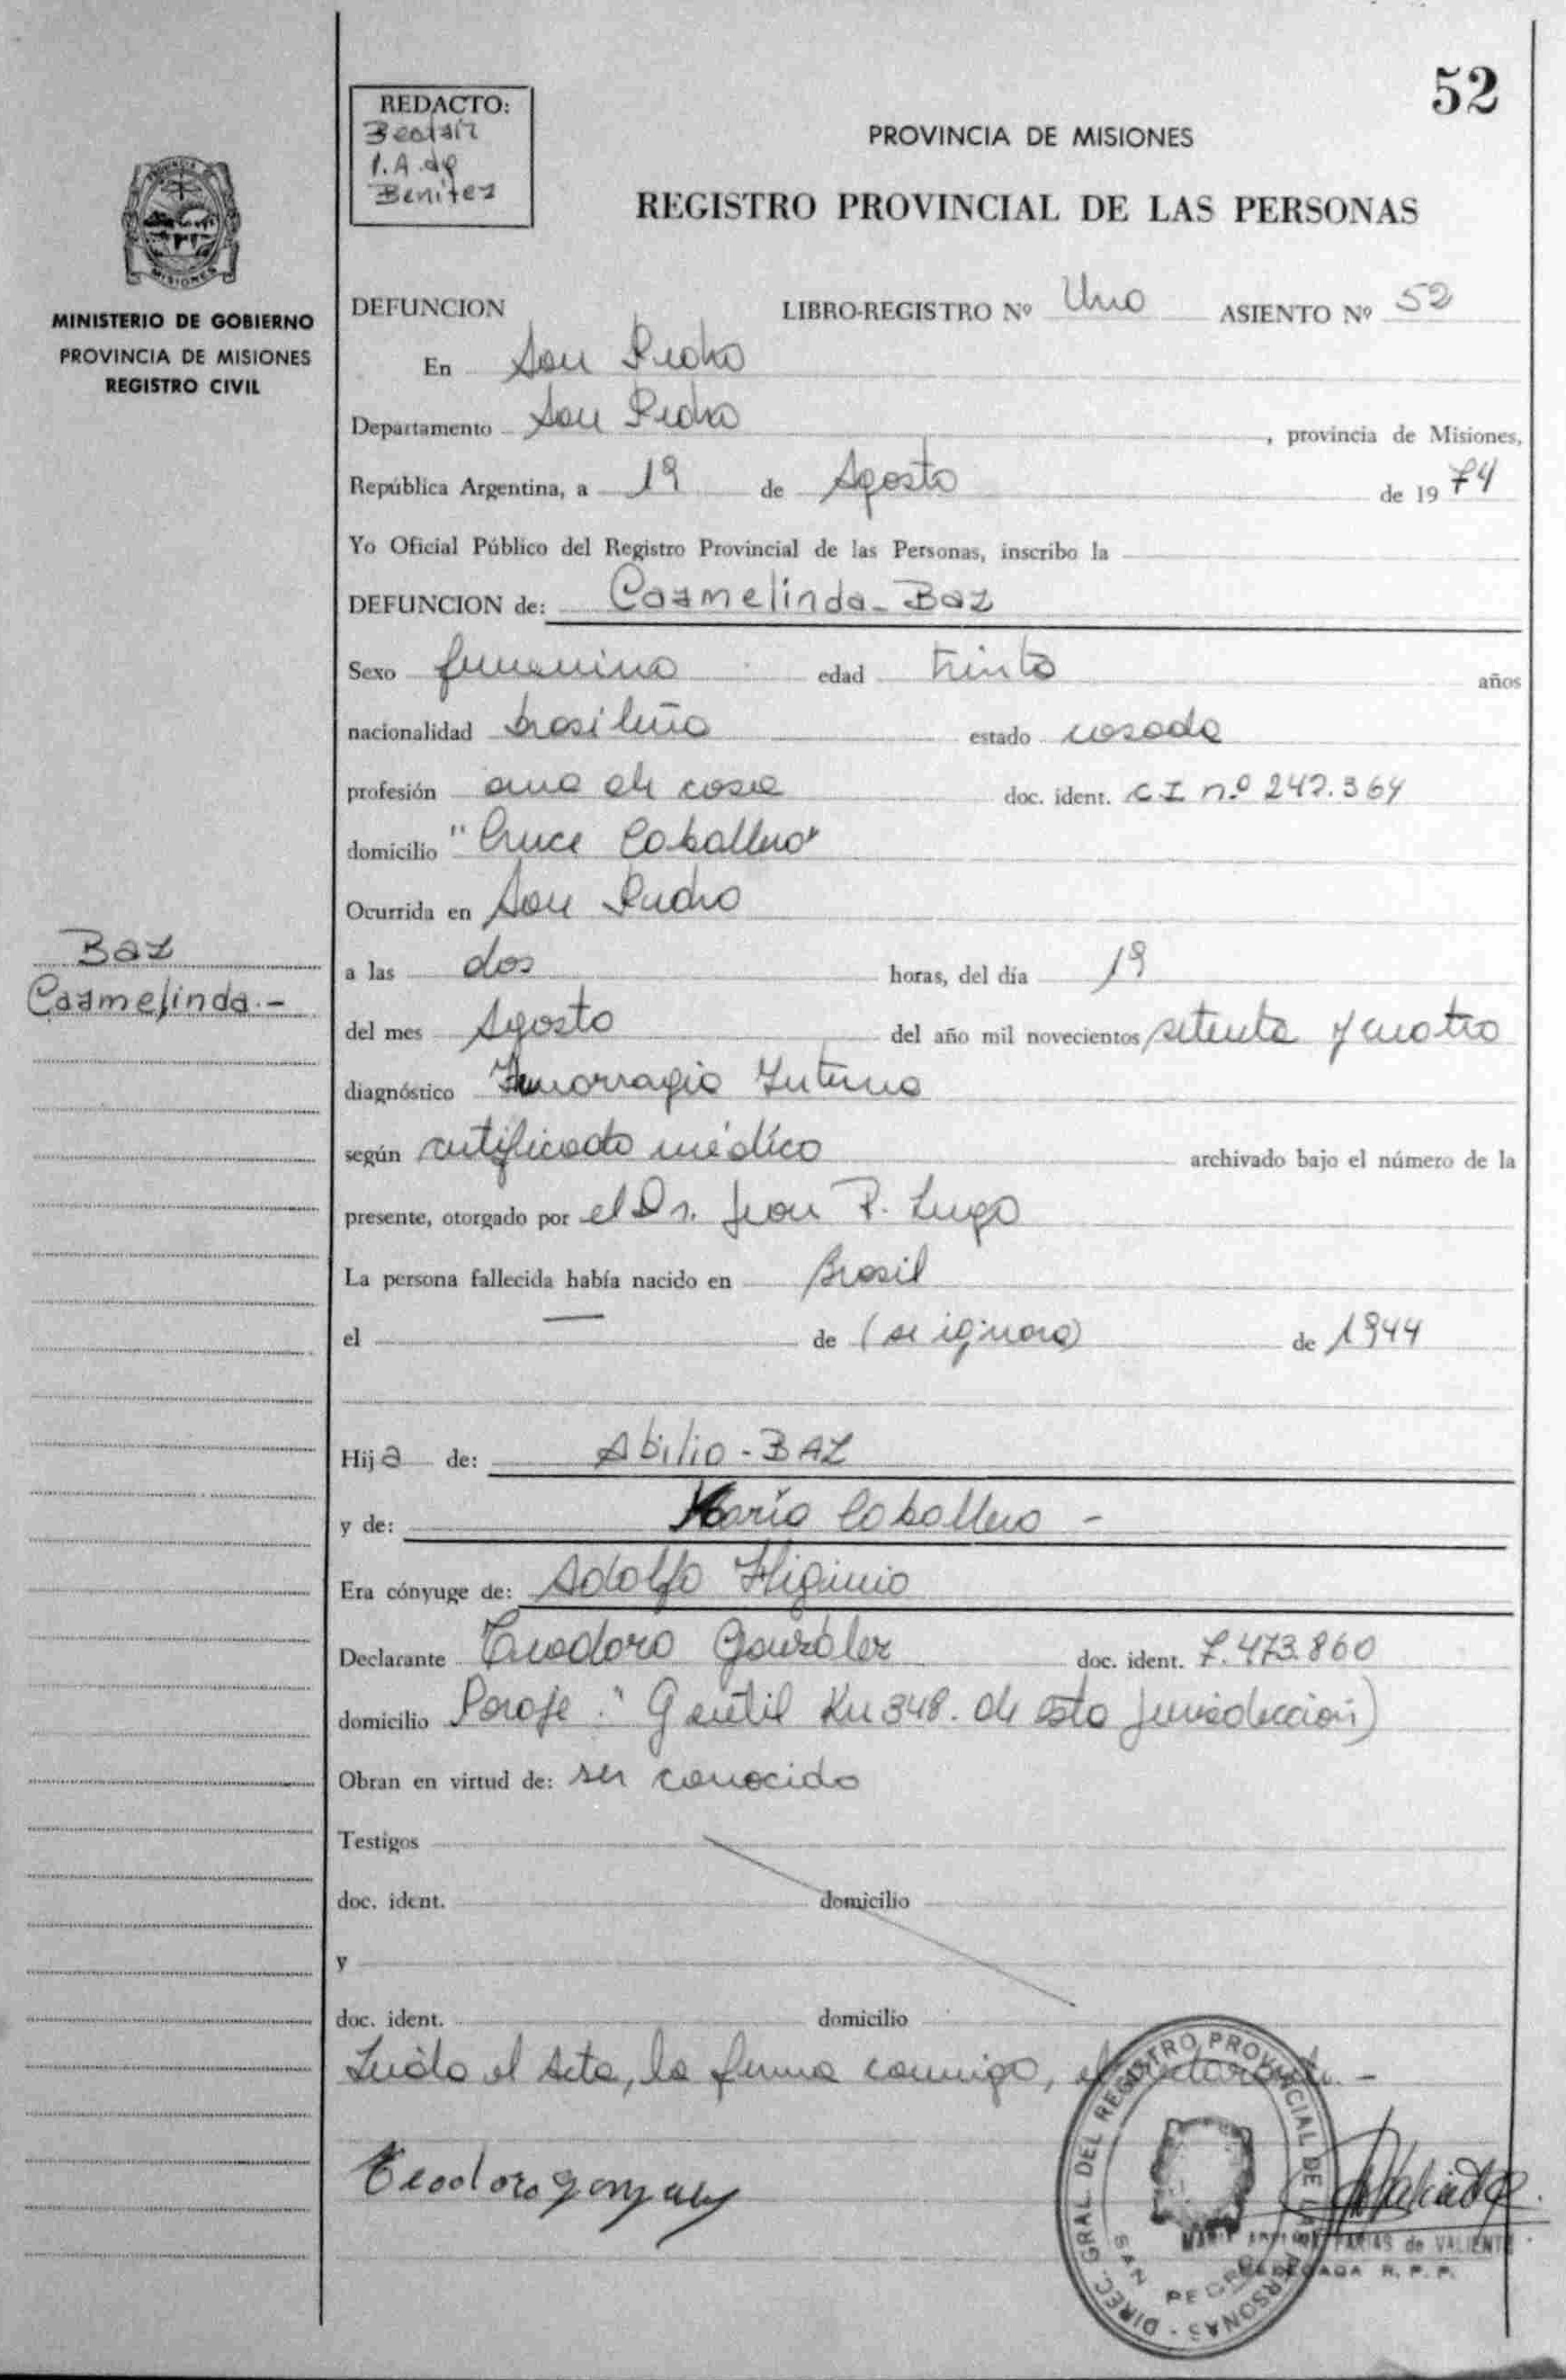 52
REDACTO:
Beatriz
I.A. de
Benitez
PROVINCIA DE MISIONES
REGISTRO PROVINCIAL DE LAS PERSONAS
MISIONES
MINISTERIO DE GOBIERNO
PROVINCIA DE MISIONES
REGISTRO CIVIL
DEFUNCION LIBRO-REGISTRO Nº Uno ASIENTO Nº 52
En San Pedro
Departamento San Pedro, provincia de Misiones,
República Argentina, a 19 de Agosto de 1974
Yo Oficial Público del Registro Provincial de las Personas, inscribo la
DEFUNCION de: Carmelinda - Baz
Sexo femenino edad treinta años
nacionalidad brasileña estado casada
profesión ama de casa doc. ident. C I nº 247.364
domicilio "Cruce Caballero"
Ocurrida en San Pedro
Baz
Carmelinda.-
a las dos horas, del día 19
del mes Agosto del año mil novecientos setenta y cuatro
diagnóstico Hemorragia Interna
según certificado médico archivado bajo el número de la
presente, otorgado por el Dr. Juan P. Lugo
La persona fallecida había nacido en Brasil
el — de (se ignora) de 1944
Hija de: Abilio - BAZ
y de: María Caballero -
Era cónyuge de: Adolfo Higinio
Declarante Teodoro González doc. ident. 7.473.860
domicilio Paraje: "Gentil Km 348. de esta jurisdicción)
Obran en virtud de: ser conocido
Testigos
doc. ident. domicilio
y
doc. ident. domicilio
Leída el Acta, la firma conmigo, el declarante.-
Teodoro gonzalez
DIREC. GRAL. DEL REGISTRO PROVINCIAL DE LAS PERSONAS
SAN PEDRO
FARIAS de VALIENTE
DELEGADA R. P. P.